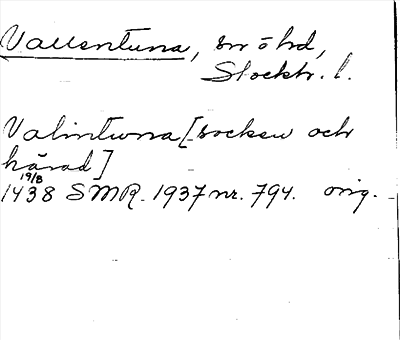 Vallentuna, sn ö hd,
Stockh. l.
Valintuna [socken och
härad]
19/8
1438 SMR. 1937 nr. 794. orig.